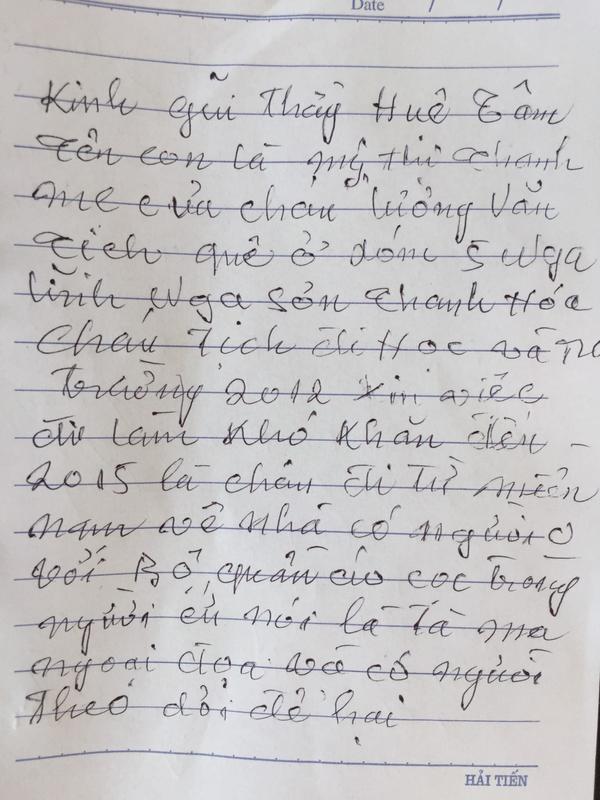 Date / /
Kinh gũi Thầy Huê Tâm
Tên con là mỹ thị Thanh
mẹ của cháu lường Văn
Tịch quê ở xóm 5 Nga
lĩnh Nga Sơn Thanh Hóa
Cháu Tịch đi Học và ra
trường 2012 xin việc
đi làm Khó Khăn đến
2015 là cháu đi Từ miền
nam về nhà có người
với Bộ quần áo cọc trong
người cứ nói là Tà ma
ngoại đạo và có người
theo dõi để hại
HẢI TIẾN